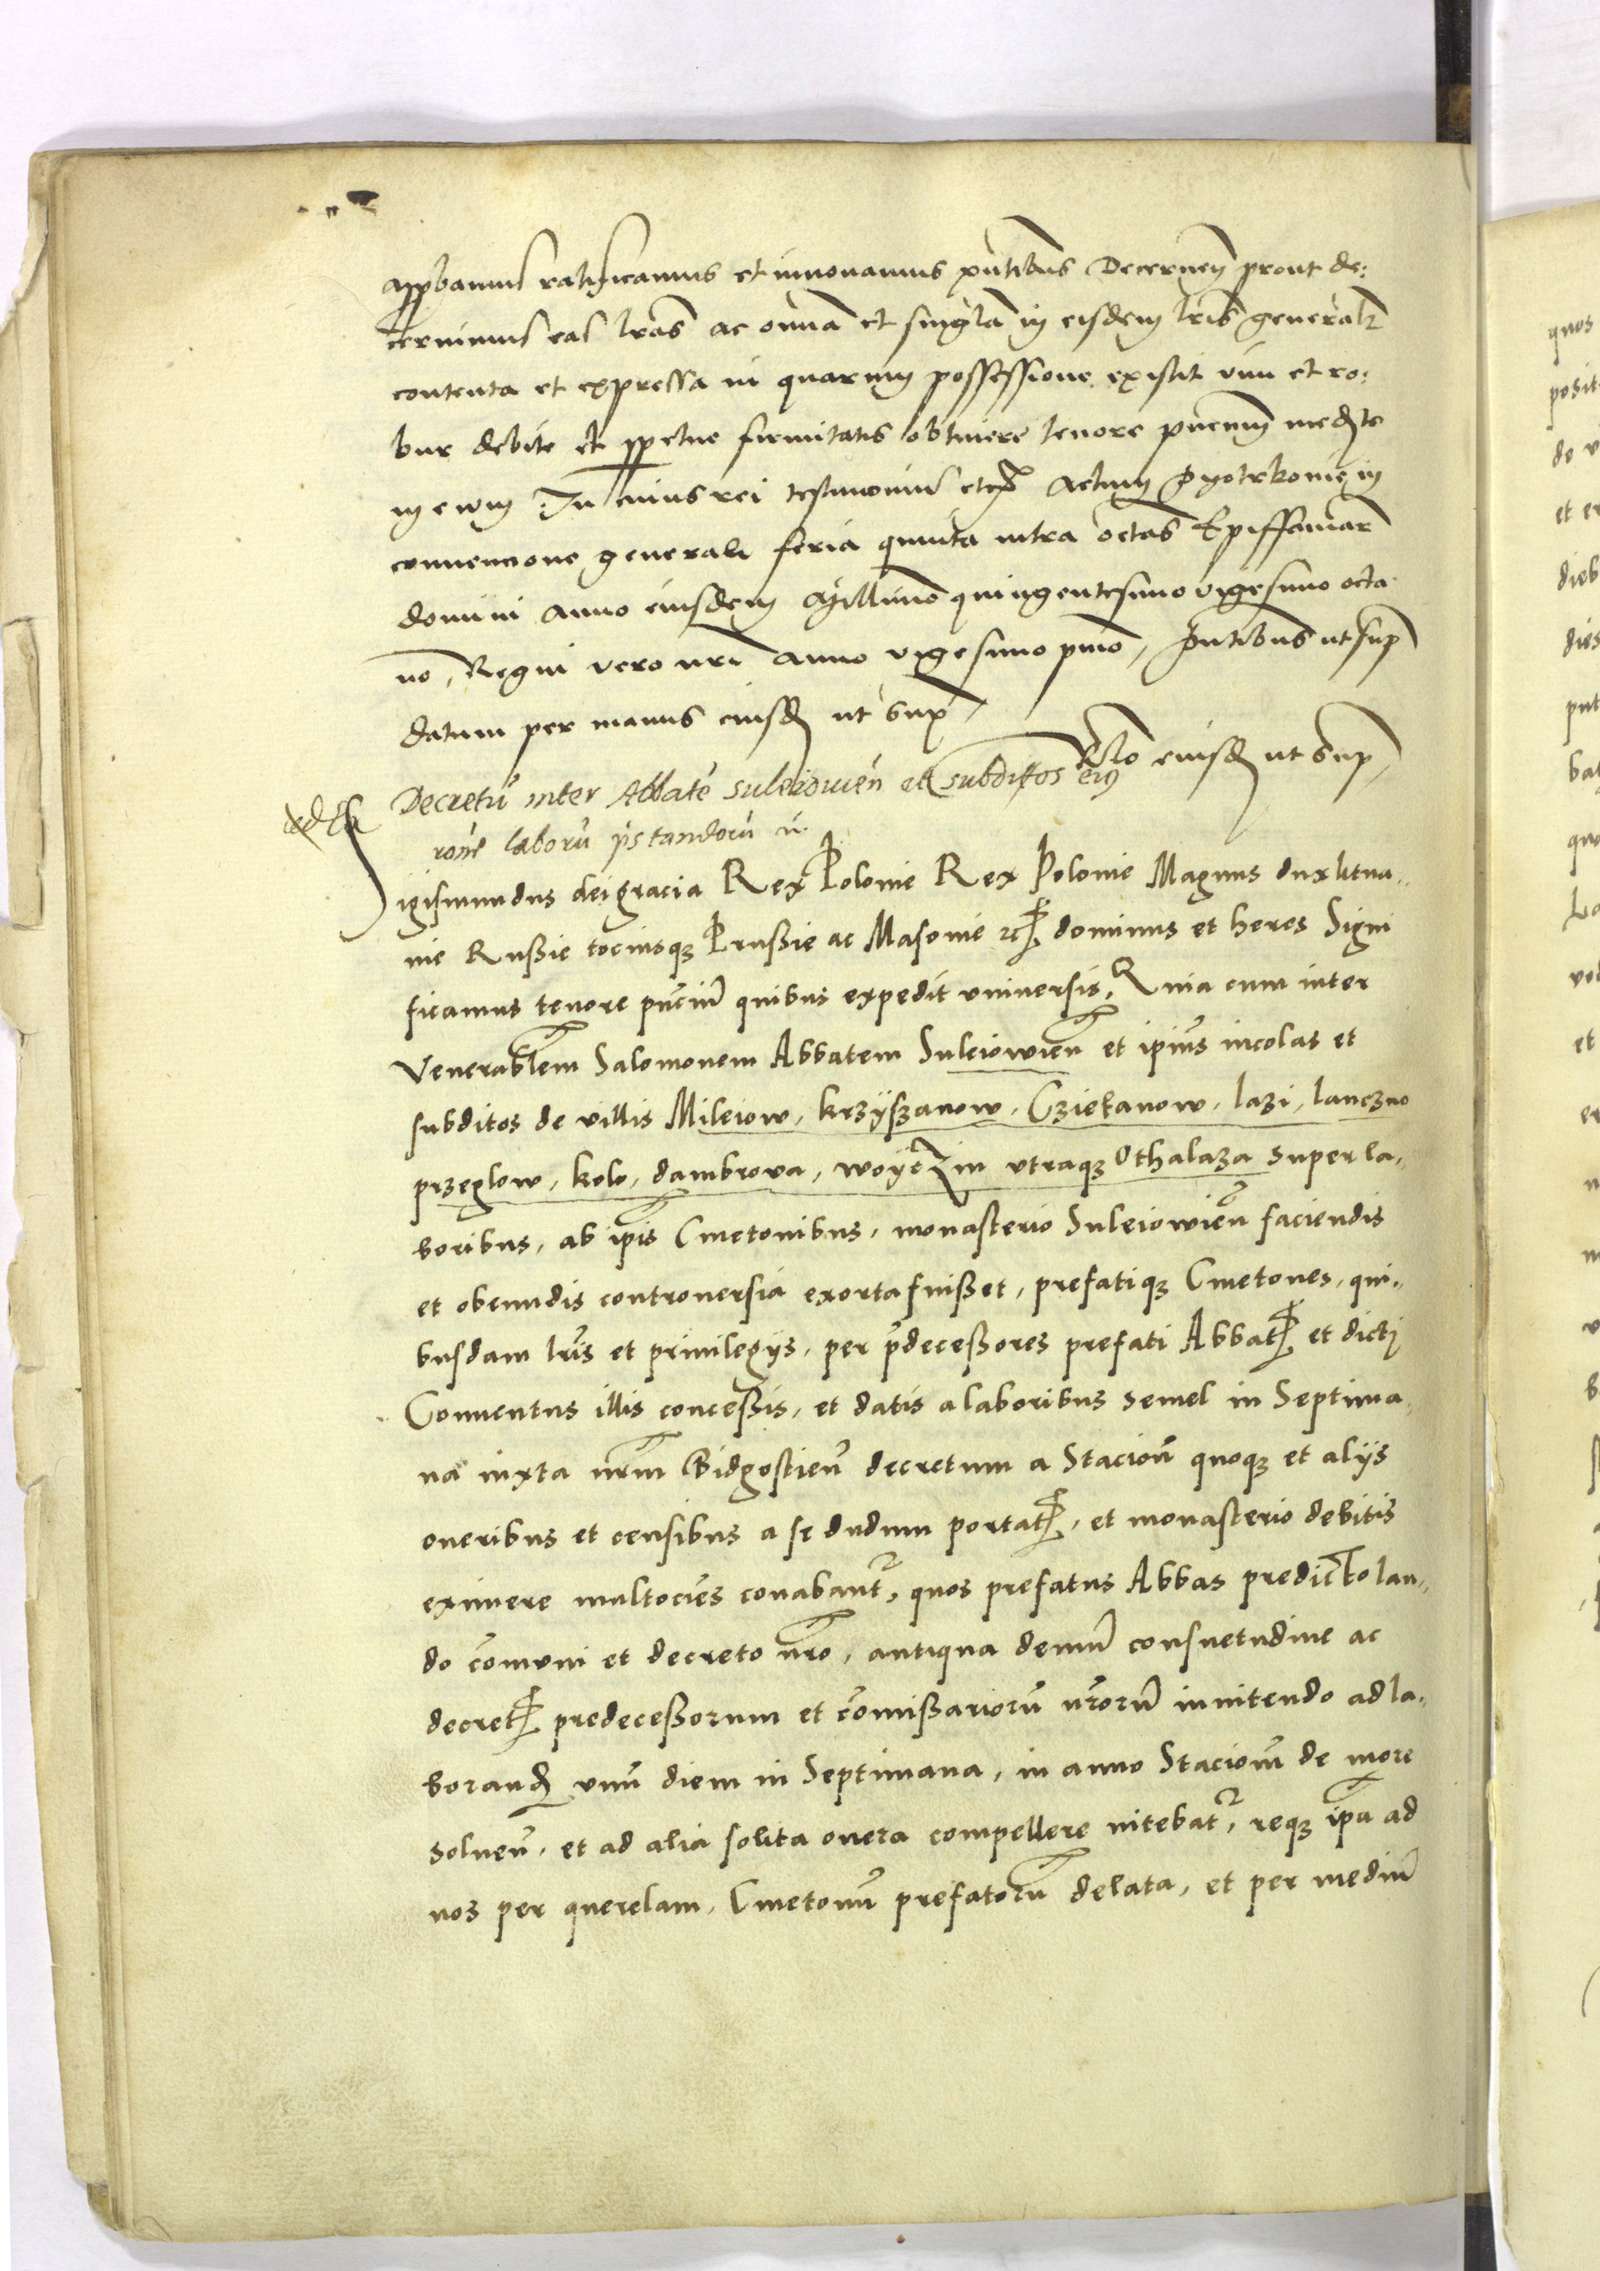 appbamus ratificamus et innovamus pntibus Decernen prout de:
cernimus eas lras ac omnia et singla in eisdem lris generalr
contenta et expressa in quarum possessione existit vim et ro:
bur debite et ppetue firmitatis obtinere tenore pncium mediante
in ewm In cuius rei testimoniu etc Actum Pyotrkovie in
convencione generali feria quinta intra octas Epiffaniar
domini Anno eiusdem Millimo quingentesimo vigesimo octa
vo, Regni vero nri Anno vigesimo pmo, Pntibus ut sup
datum per manus eiusd ut supra
Rlo eiusd ut Sup
Decretu inter Abbate suleiowien et subditos eius
rone laboru pstandoru
Sigismundus dei gracia Rex Polonie Rex Polonie Magnus dux litua-
nie Russie tociusq Prussie ac Masovie etc dominus et heres Signi
ficamus tenore pncium quibus expedit universis, Quia cum inter
Venerablem Salomonem Abbatem Suleiowien et ipius incolas et
subditos de villis Mileiow, krzÿszanow, Cziekanow, lazi, lanczno
przeglow, kolo, dambrova, woytzin utraqz Othalaza super la-
boribus, ab ipis Cmetonibus, monasterio Suleiowien faciendis
et obeundis controversia exorta fuisset, prefatiqz Cmetones, qui-
busdam lris et privilegÿs, per pdecessores prefati Abbatis et dicti
Conventus illis concessis, et datis a laboribus semel in Septima-
na iuxta nrm Bidgostien decretum a Stacion quoqz et alÿs
oneribus et censibus a se dudum portatis, et monasterio debitis
eximere multocies conabantr, quos prefatus Abbas predicto lau-
do comuni et decreto nro, antiqua demu consuetudine ac
decretis predecessorum et comissarioru nroru innitendo ad la-
borand unu diem in Septimana, in anno Staciom de more
solven, et ad alia solita onera compellere nitebatr, reqz ipa ad
nos per querelam, Cmetonu prefatoru delata, et per mediu